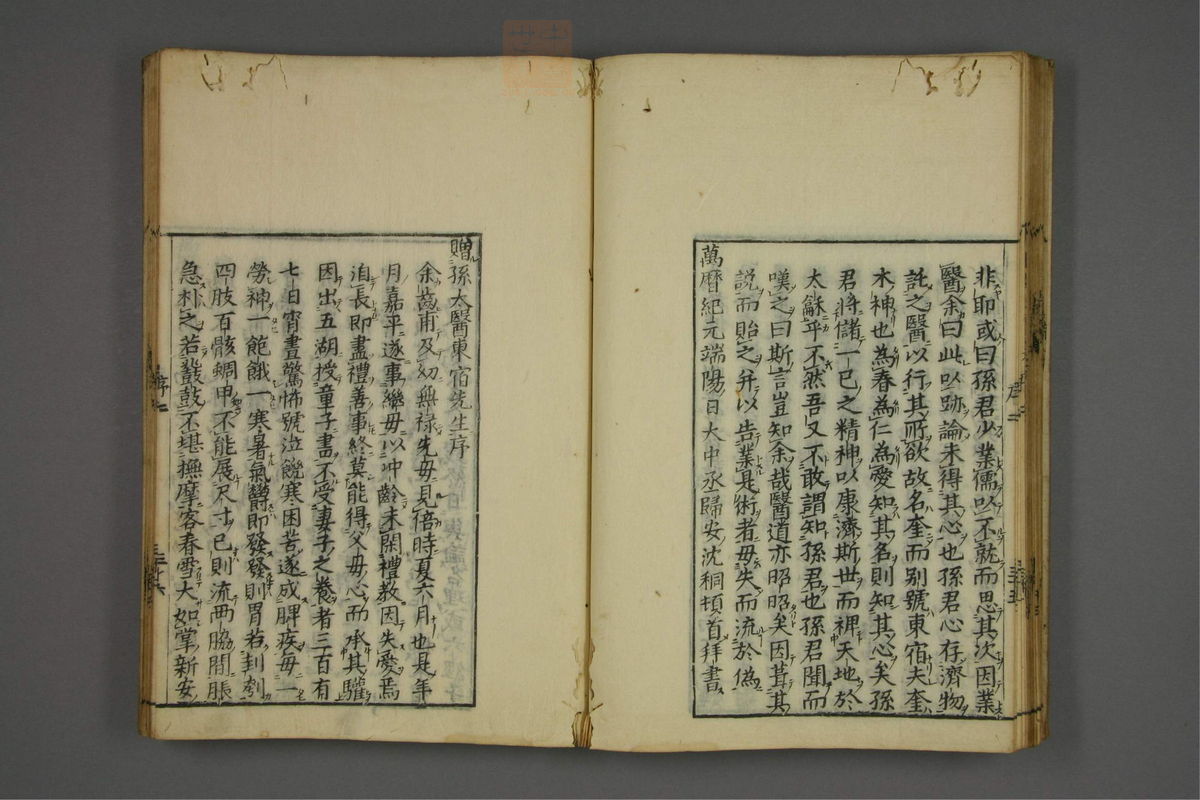 非耶或曰孫君少業儒以不就而思其次因業
醫余曰此以跡論未得其心也孫君心存濟物
託之醫以行其所欲故名奎而別號東宿夫奎
木神也為春為仁為愛知其名則知其心矣孫
君將諸一已之精神以康濟斯世而裨天地於
太龢乎不然吾又不敢謂知孫君也孫君聞而
嘆之曰斯言豈知余哉醫道亦昭昭矣因葺其
說而貽之并以告業是術者毋失而流於偽
萬曆紀元端陽日大中丞歸安沈桐頓首拜書
序二
三十五
贈孫太醫東宿先生序
余齒甫及幼無祿先毋見倍時夏六月也是年
月嘉平遂事繼毋以冲齡未閑禮教因失愛焉
洎長即盡禮善事終莫能得父毋心而承其驩
因出五湖授童子書不受妻子之養者三百有
七日宵晝驚怖號泣饑寒困苦遂成脾疾毎一
勞神一飽餓一寒暑氣欝即發發則胃若刲刳
四肢百骸蜩甲不能展尺寸已則流両脇間脹
急朴之若鼖鼓不堪撫摩客春雪大如掌新安
序二
三十六